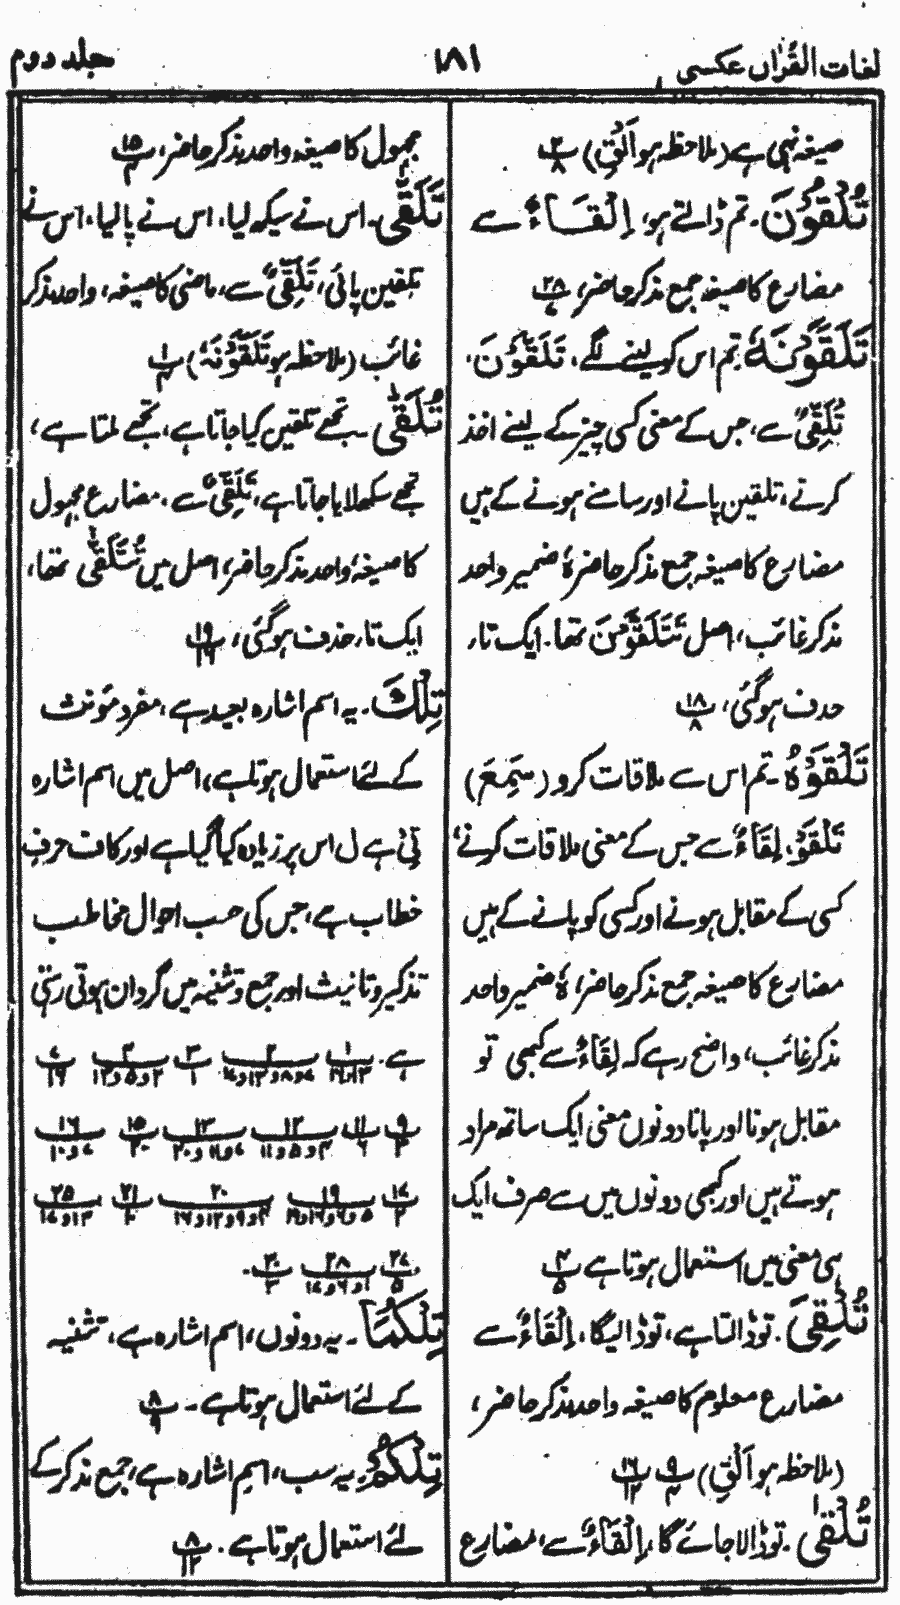 لغات القرآن عکسی ۱۸۱ جلد دوم
صیغہ نہی ہے (ملاحظہ ہو اَلْقِ) ۳/۸
تُلْقُوْنَ۔ تم ڈالتے ہو، اِلْقَاءٌ سے
مضارع کا صیغہ جمع مذکر حاضر، ۲۸
تَلَقَّوْنَهٗ۔ تم اس کو لینے لگے، تَلَقَّوْنَ،
تَلَقِّیْ سے، جس کے معنی کسی چیز کے لینے اخذ
کرنے، تلقین پانے اور سامنے ہونے کے ہیں
مضارع کا صیغہ جمع مذکر حاضر، ہٗ ضمیر واحد
مذکر غائب، اصل تَتَلَقَّوْنَ تھا۔ ایک تاء
حذف ہوگئی، ۱۸/۸
تَلْقَوْهُ۔ تم اس سے ملاقات کرو (سَمِعَ)
تَلْقَوْ، لِقَاءٌ سے جس کے معنی ملاقات کرنے،
کسی کے مقابل ہونے اور کسی کو پانے کے ہیں
مضارع کا صیغہ جمع مذکر حاضر، ہٗ ضمیر واحد
مذکر غائب، واضح رہے کہ لِقَاءٌ سے کبھی تو
مقابل ہونا اور پانا دونوں معنی ایک ساتھ مراد
ہوتے ہیں اور کبھی دونوں میں سے صرف ایک
ہی معنی میں استعمال ہوتا ہے ۴/۵
تُلْقِیَ۔ تو ڈالتا ہے، تو ڈالیگا، اِلْقَاءٌ سے
مضارع معلوم کا صیغہ واحد مذکر حاضر،
(ملاحظہ ہو اَلْقِ) ۹/۴ ۱۶/۱۲
تُلْقٰی۔ تو ڈالا جائے گا، اِلْقَاءٌ سے، مضارع
مجہول کا صیغہ واحد مذکر حاضر، ۱۵/۴
تَلَقّٰی۔ اس نے سیکھ لیا، اس نے پا لیا، اس نے
تلقین پائی، تَلَقِّیْ سے، ماضی کا صیغہ، واحد مذکر
غائب (ملاحظہ ہو تَلَقَّوْنَهٗ) ۱/۴
تُلَقّٰی۔ تجھے تلقین کیا جاتا ہے، تجھے ملتا ہے،
تجھے سکھلایا جاتا ہے، تَلَقِّیْ سے، مضارع مجہول
کا صیغہ، واحد مذکر حاضر، اصل میں تُتَلَقّٰی تھا،
ایک تاء حذف ہوگئی، ۱۹/۱۶
تِلْكَ۔ یہ اسم اشارہ بعید ہے، مفرد مؤنث
کے لئے استعمال ہوتا ہے، اصل میں اسم اشارہ
تِیْ ہے ل اس پر زیادہ کیا گیا ہے اور کاف حرف
خطاب ہے، جس کی حسب احوال مخاطب
تذکیر و تانیث اور جمع و تثنیہ میں گردان ہوتی رہتی
ہے۔ ۱/۱۳و۱۶ ۲/۷و۸و۱۳و۱۷ ۳/۱ ۴/۲و۵و۱۲ ۷/۱۶
۹/۳ ۱۱/۶ ۱۲/۴و۵و۱۱ ۱۳/۷و۱۱و۲۰ ۱۵/۲۰ ۱۶/۷و۱۰
۱۷/۲ ۱۹/۵و۶و۱۶و۱۹ ۲۰/۴و۹و۱۲و۱۶ ۲۱/۲۰ ۲۵/۱۳و۱۷
۲۷/۵ ۲۸/۱و۶و۱۷ ۳۰/۳۔
تِلْكُمَا۔ یہ دونوں، اسم اشارہ ہے، تثنیہ
کے لئے استعمال ہوتا ہے۔ ۸/۹
تِلْكُمُ۔ یہ سب، اسمِ اشارہ ہے، جمع مذکر کے
لئے استعمال ہوتا ہے۔ ۸/۱۲